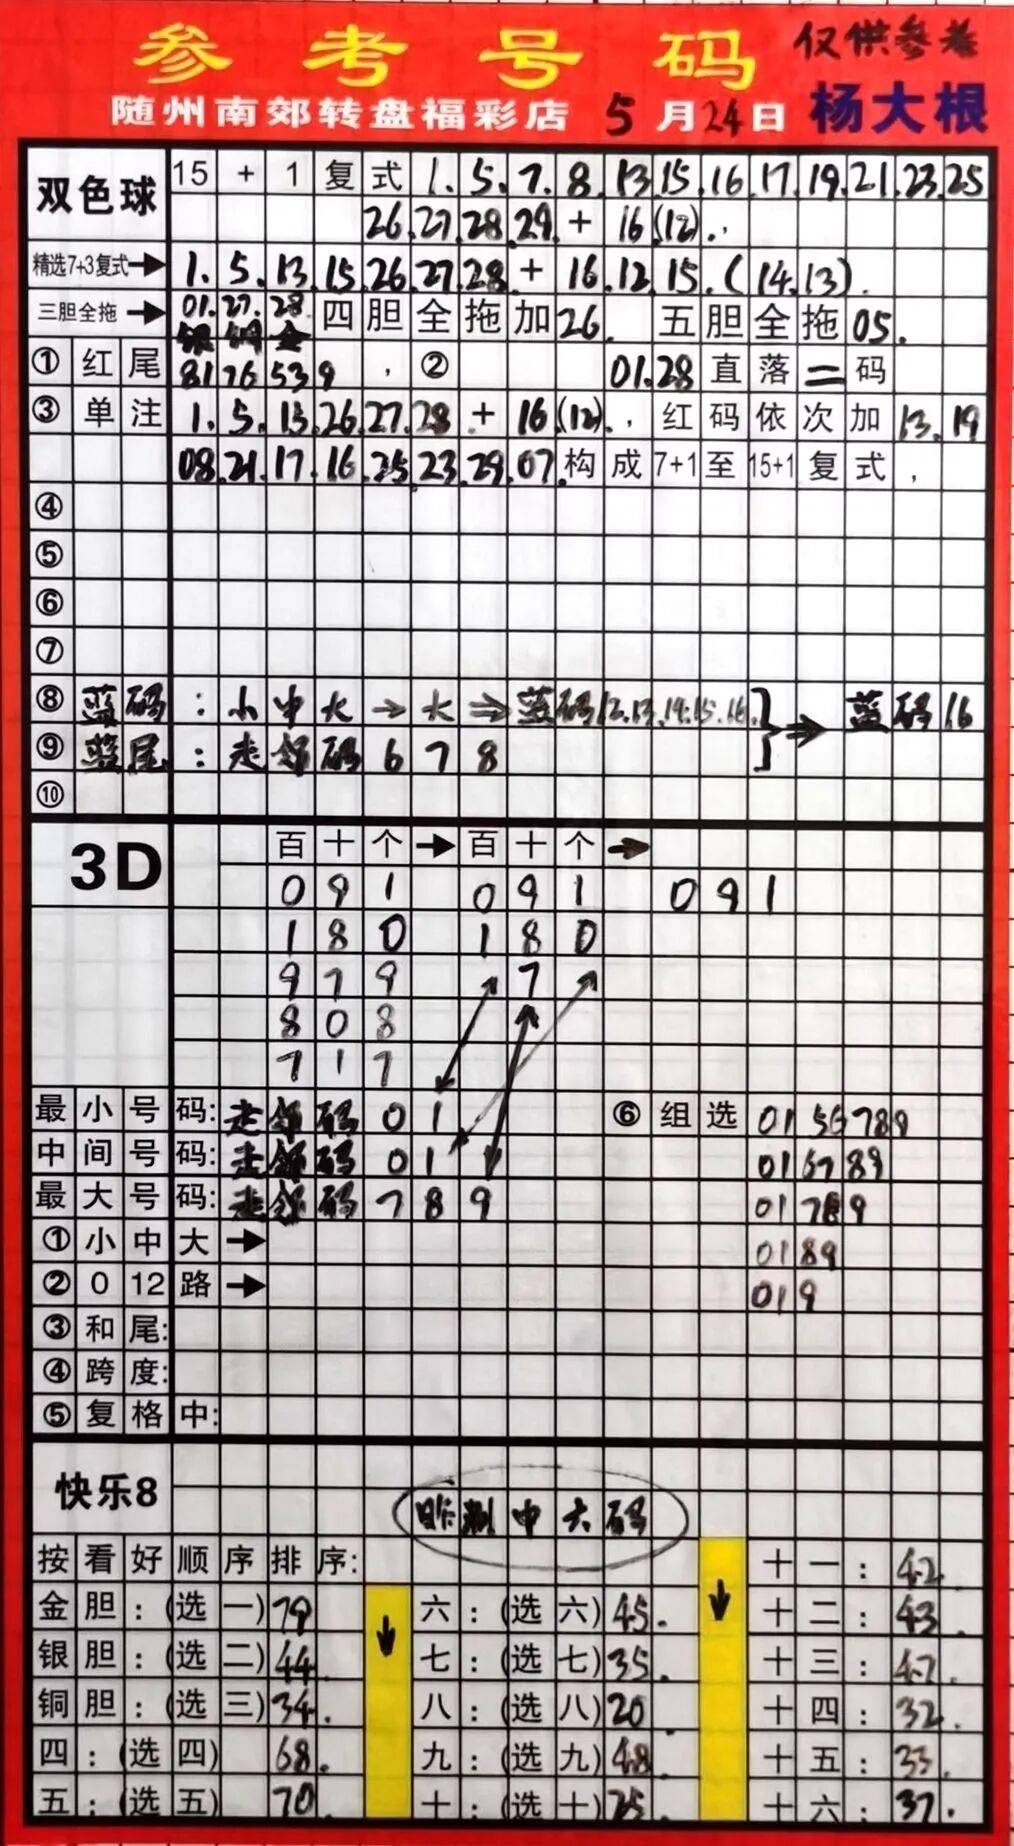 参考号码 仅供参考
随州南郊转盘福彩店 5月24日 杨大根
双色球 15+1复式 1.5.7.8.13.15.16.17.19.21.23.25
26.27.28.29+16(12).
精选7+3复式→ 1.5.13.15.26.27.28+16.12.15.(14.13).
三胆全拖→ 01.27.28 四胆全拖加26. 五胆全拖05.
银 铜 金
①红尾 81 76 53 9, ② 01.28直落二码
③单注 1.5.13.26.27.28+16(12)., 红码依次加13.19
08.21.17.16.25.23.29.07.构成7+1至15+1复式,
④
⑤
⑥
⑦
⑧蓝码:小中大→大⇒蓝码12.13.14.15.16.}⇒蓝码16
⑨蓝尾:走邻码678
⑩
3D 百十个→百十个→
091 091 091
180 180
979 7
808
717
最小号码:走邻码01 ⑥组选0156789
中间号码:走邻码01 016789
最大号码:走邻码789 01789
①小中大→ 0189
②012路→ 019
③和尾:
④跨度:
⑤复格中:
快乐8
昨测中六码
按看好顺序排序: 十一:42.
金胆:(选一)79 ↓ 六:(选六)45. ↓ 十二:43.
银胆:(选二)44. 七:(选七)35. 十三:47.
铜胆:(选三)34. 八:(选八)20. 十四:32.
四:(选四)68. 九:(选九)48. 十五:33.
五:(选五)70. 十:(选十)25. 十六:37.